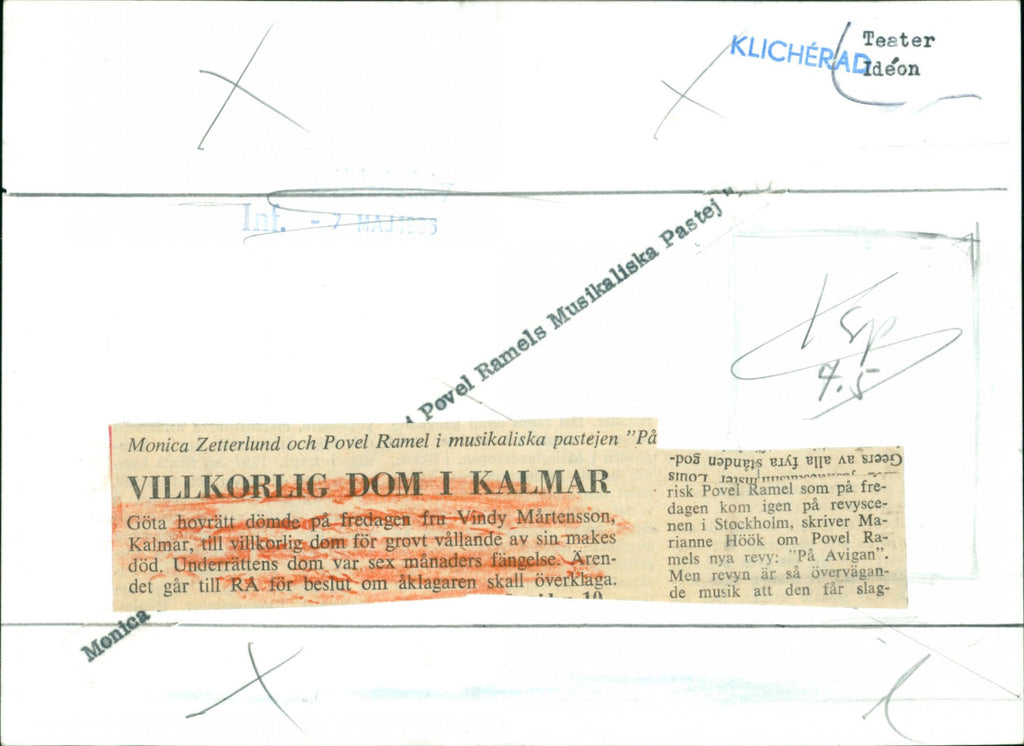 KLICHÉRAD
Teater
Idéon
Inf. - 7 MAJ 1965
Monica
i Povel Ramels Musikaliska Pastej "
4.5
Monica Zetterlund och Povel Ramel i musikaliska pastejen "På
VILLKORLIG DOM I KALMAR
Göta hovrätt dömde på fredagen fru Vindy Mårtensson,
Kalmar, till villkorlig dom för grovt vållande av sin makes
död. Underrättens dom var sex månaders fängelse. Ären-
det går till RÅ för beslut om åklagaren skall överklaga.
Geers av alla fyra stånden god-
Louis
risk Povel Ramel som på fre-
dagen kom igen på revysce-
nen i Stockholm, skriver Ma-
rianne Höök om Povel Ra-
mels nya revy: "På Avigan".
Men revyn är så övervägan-
de musik att den får slag-